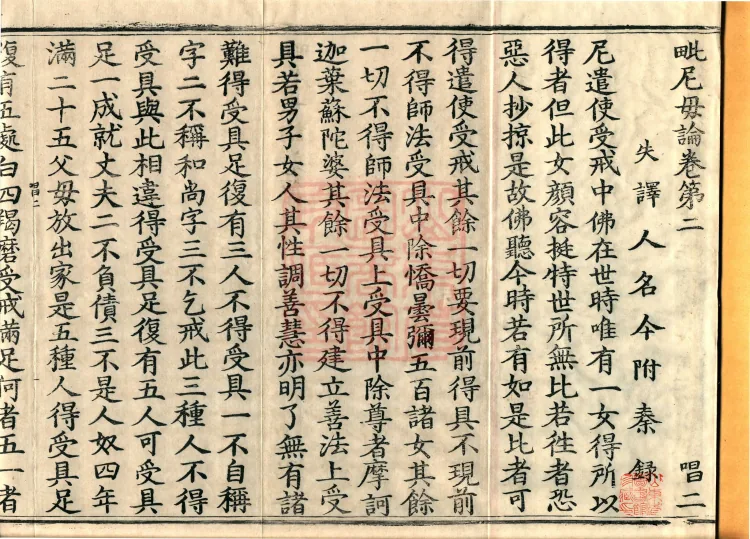 毗尼毋論卷第二 唱二
失譯人名今附秦録
尼遣使受戒中佛在世時唯有一女得所以
得者但此女顔容挺特世所無比若徃者恐
惡人抄掠是故佛聽今時若有如是比者可
得遣使受戒其餘一切要現前得具不現前
不得師法受具中除憍曇彌五百諸女其餘
一切不得師法受具上受具中除尊者摩訶
迦葉蘇陀婆其餘一切不得建立善法上受
具若男子女人其性調善慧亦明了無有諸
難得受具足復有三人不得受具一不自稱
字二不稱和尚字三不乞戒此三種人不得
受具與此相違得受具足復有五人可受具
足一成就丈夫二不負債三不是人奴四年
滿二十五父毋放出家是五種人得受具足
唱二
復有五處白四羯磨受戒滿足何者五一者